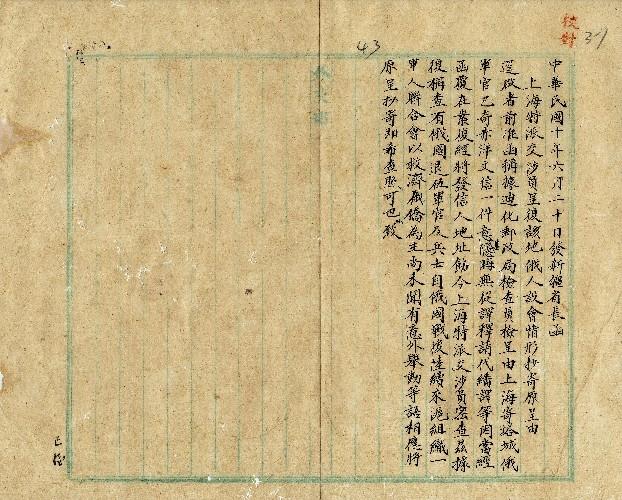 校對
31
43
中華民國十年六月二十日發新疆省長函
上海特派交涉員呈復該地俄人設會情形抄寄原呈由
逕啟者前准函稱據迪化郵政局檢查員檢呈由上海寄塔城俄
軍官巴奇赤洋文信一件意隱晦無從譯釋請代繙譯等因當經
函覆在案復經將發信人地址飭令上海特派交涉員密查茲據
復稱查有俄國退伍軍官及兵士自俄國戰後陸續來滬組織一
軍人聯合會以救濟俄僑為主尚未聞有意外舉動等語相應將
原呈抄寄即希查照可也 致